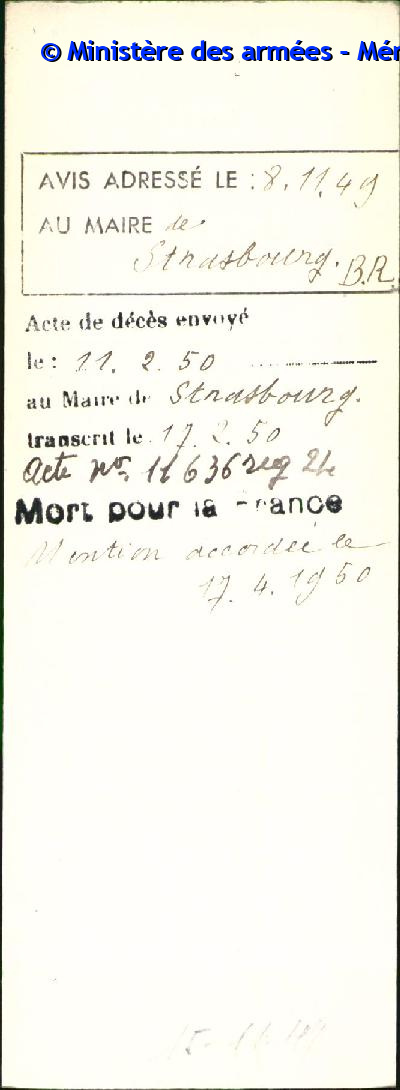 © Ministère des armées - Mém
AVIS ADRESSÉ LE : 8.11.49
AU MAIRE de
Strasbourg. B.R.
Acte de décès envoyé
le : 11. 2. 50
au Maire de Strasbourg.
transcrit le 17. 2. 50
Acte no. 11636 reg 24
Mort pour la France
Mention accordée le
17. 4. 1950